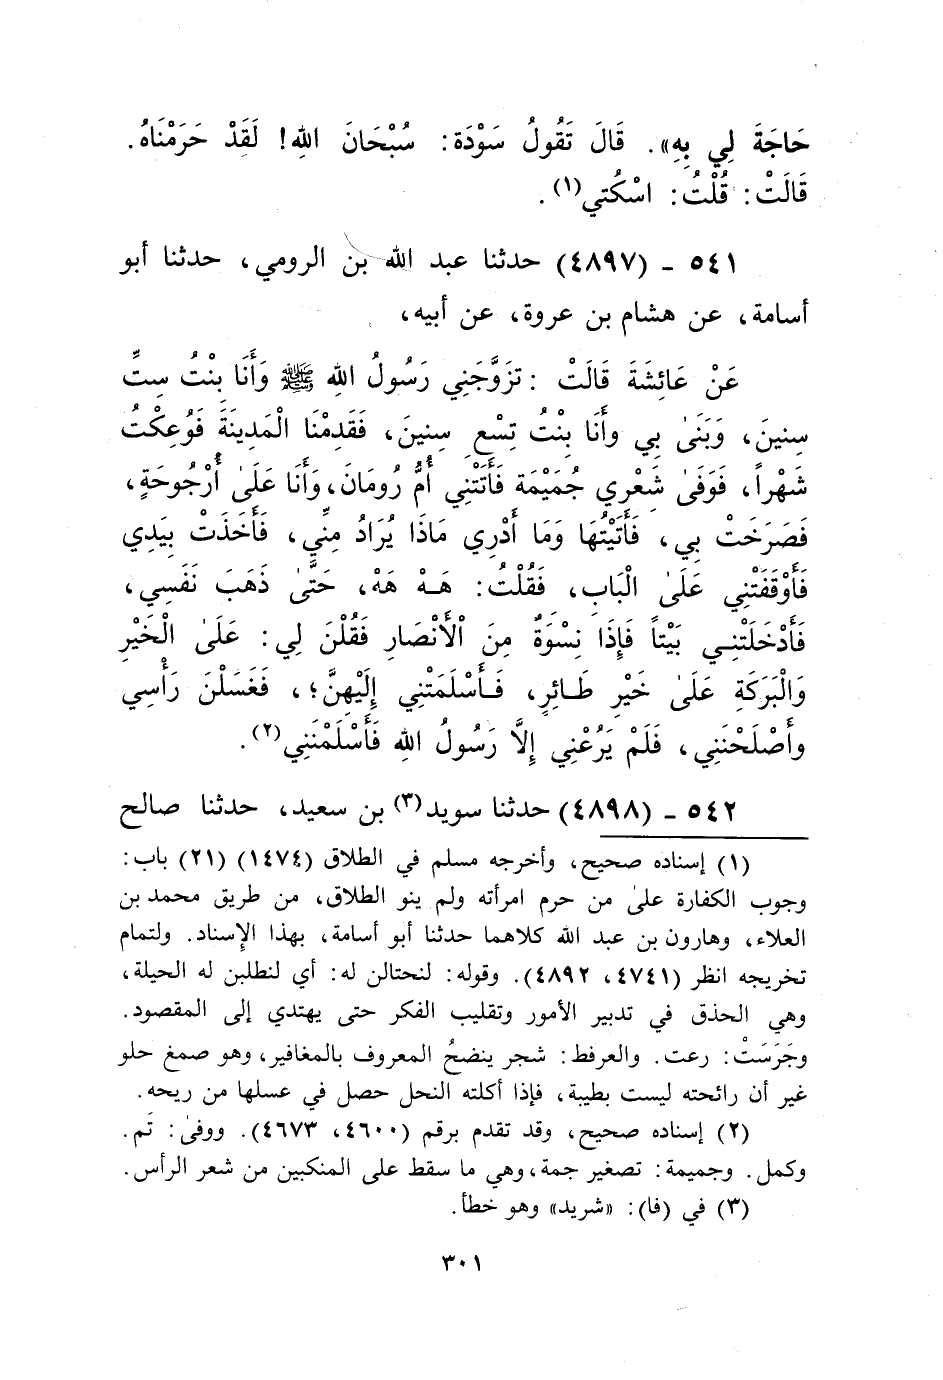 حَاجَةَ لِي بِهِ». قَالَ تَقُولُ سَوْدَة: سُبْحَانَ اللهِ! لَقَدْ حَرَمْنَاهُ.
قَالَتْ: قُلْتُ: اسْكُتي(١).
٥٤١ ـ (٤٨٩٧) حدثنا عبد الله بن الرومي، حدثنا أبو
أسامة، عن هشام بن عروة، عن أبيه،
عَنْ عَائِشَةَ قَالَتْ: تَزَوَّجَنِي رَسُولُ اللهِ ﷺ وَأَنَا بِنْتُ سِتِّ
سِنينَ، وَبَنَىٰ بِي وأَنَا بِنْتُ تِسْعِ سِنِينَ، فَقَدِمْنَا الْمَدِينَةَ فَوُعِكْتُ
شَهْراً، فَوَفَىٰ شَعْرِي جُمَيْمَة فَأَتَتْنِي أُمُّ رُومَانَ، وَأَنَا عَلَىٰ أُرْجُوحَةٍ،
فَصَرَخَتْ بِي، فَأَتَيْتُهَا وَمَا أَدْرِي مَاذَا يُرَادُ مِنِّي، فَأَخَذَتْ بِيَدِي
فَأَوْقَفَتْنِي عَلَىٰ الْبَابِ، فَقُلْتُ: هَـهْ هَهْ، حَتَّىٰ ذَهَبَ نَفَسِي،
فَأَدْخَلَتْنِـي بَيْتاً فَإِذَا نِسْوَةٌ مِنَ الْأَنْصَارِ فَقُلْنَ لِي: عَلَىٰ الْخَيْرِ
وَالْبَرَكَةِ عَلَىٰ خَيْرِ طَـائِرٍ، فَـأَسْلَمَتْنِي إِلَيْهِنَّ؛، فَغَسَلْنَ رَأْسِي
وأَصْلَحْنَنِي، فَلَمْ يَرُعْنِي إِلَّا رَسُولُ اللهِ فَأَسْلَمْنَنِي(٢).
٥٤٢ ـ (٤٨٩٨) حدثنا سويد(٣) بن سعيد، حدثنا صالح
(١) إسناده صحيح، وأخرجه مسلم في الطلاق (١٤٧٤) (٢١) باب:
وجوب الكفارة علىٰ من حرم امرأته ولم ينو الطلاق، من طريق محمد بن
العلاء، وهارون بن عبد الله كلاهما حدثنا أبو أسامة، بهذا الإسناد. ولتمام
تخريجه انظر (٤٧٤١، ٤٨٩٢). وقوله: لنحتالن له: أي لنطلبن له الحيلة،
وهي الحذق في تدبير الأمور وتقليب الفكر حتى يهتدي إلى المقصود.
وجَرَسَتْ: رعت. والعرفط: شجر ينضحُ المعروف بالمغافير، وهو صمغ حلو
غير أن رائحته ليست بطيبة، فإذا أكلته النحل حصل في عسلها من ريحه.
(٢) إسناده صحيح، وقد تقدم برقم (٤٦٠٠، ٤٦٧٣). ووفىٰ: تَم.
وكمل. وجميمة: تصغير جمة، وهي ما سقط على المنكبين من شعر الرأس.
(٣) في (فا): «شريد» وهو خطأ.
٣٠١